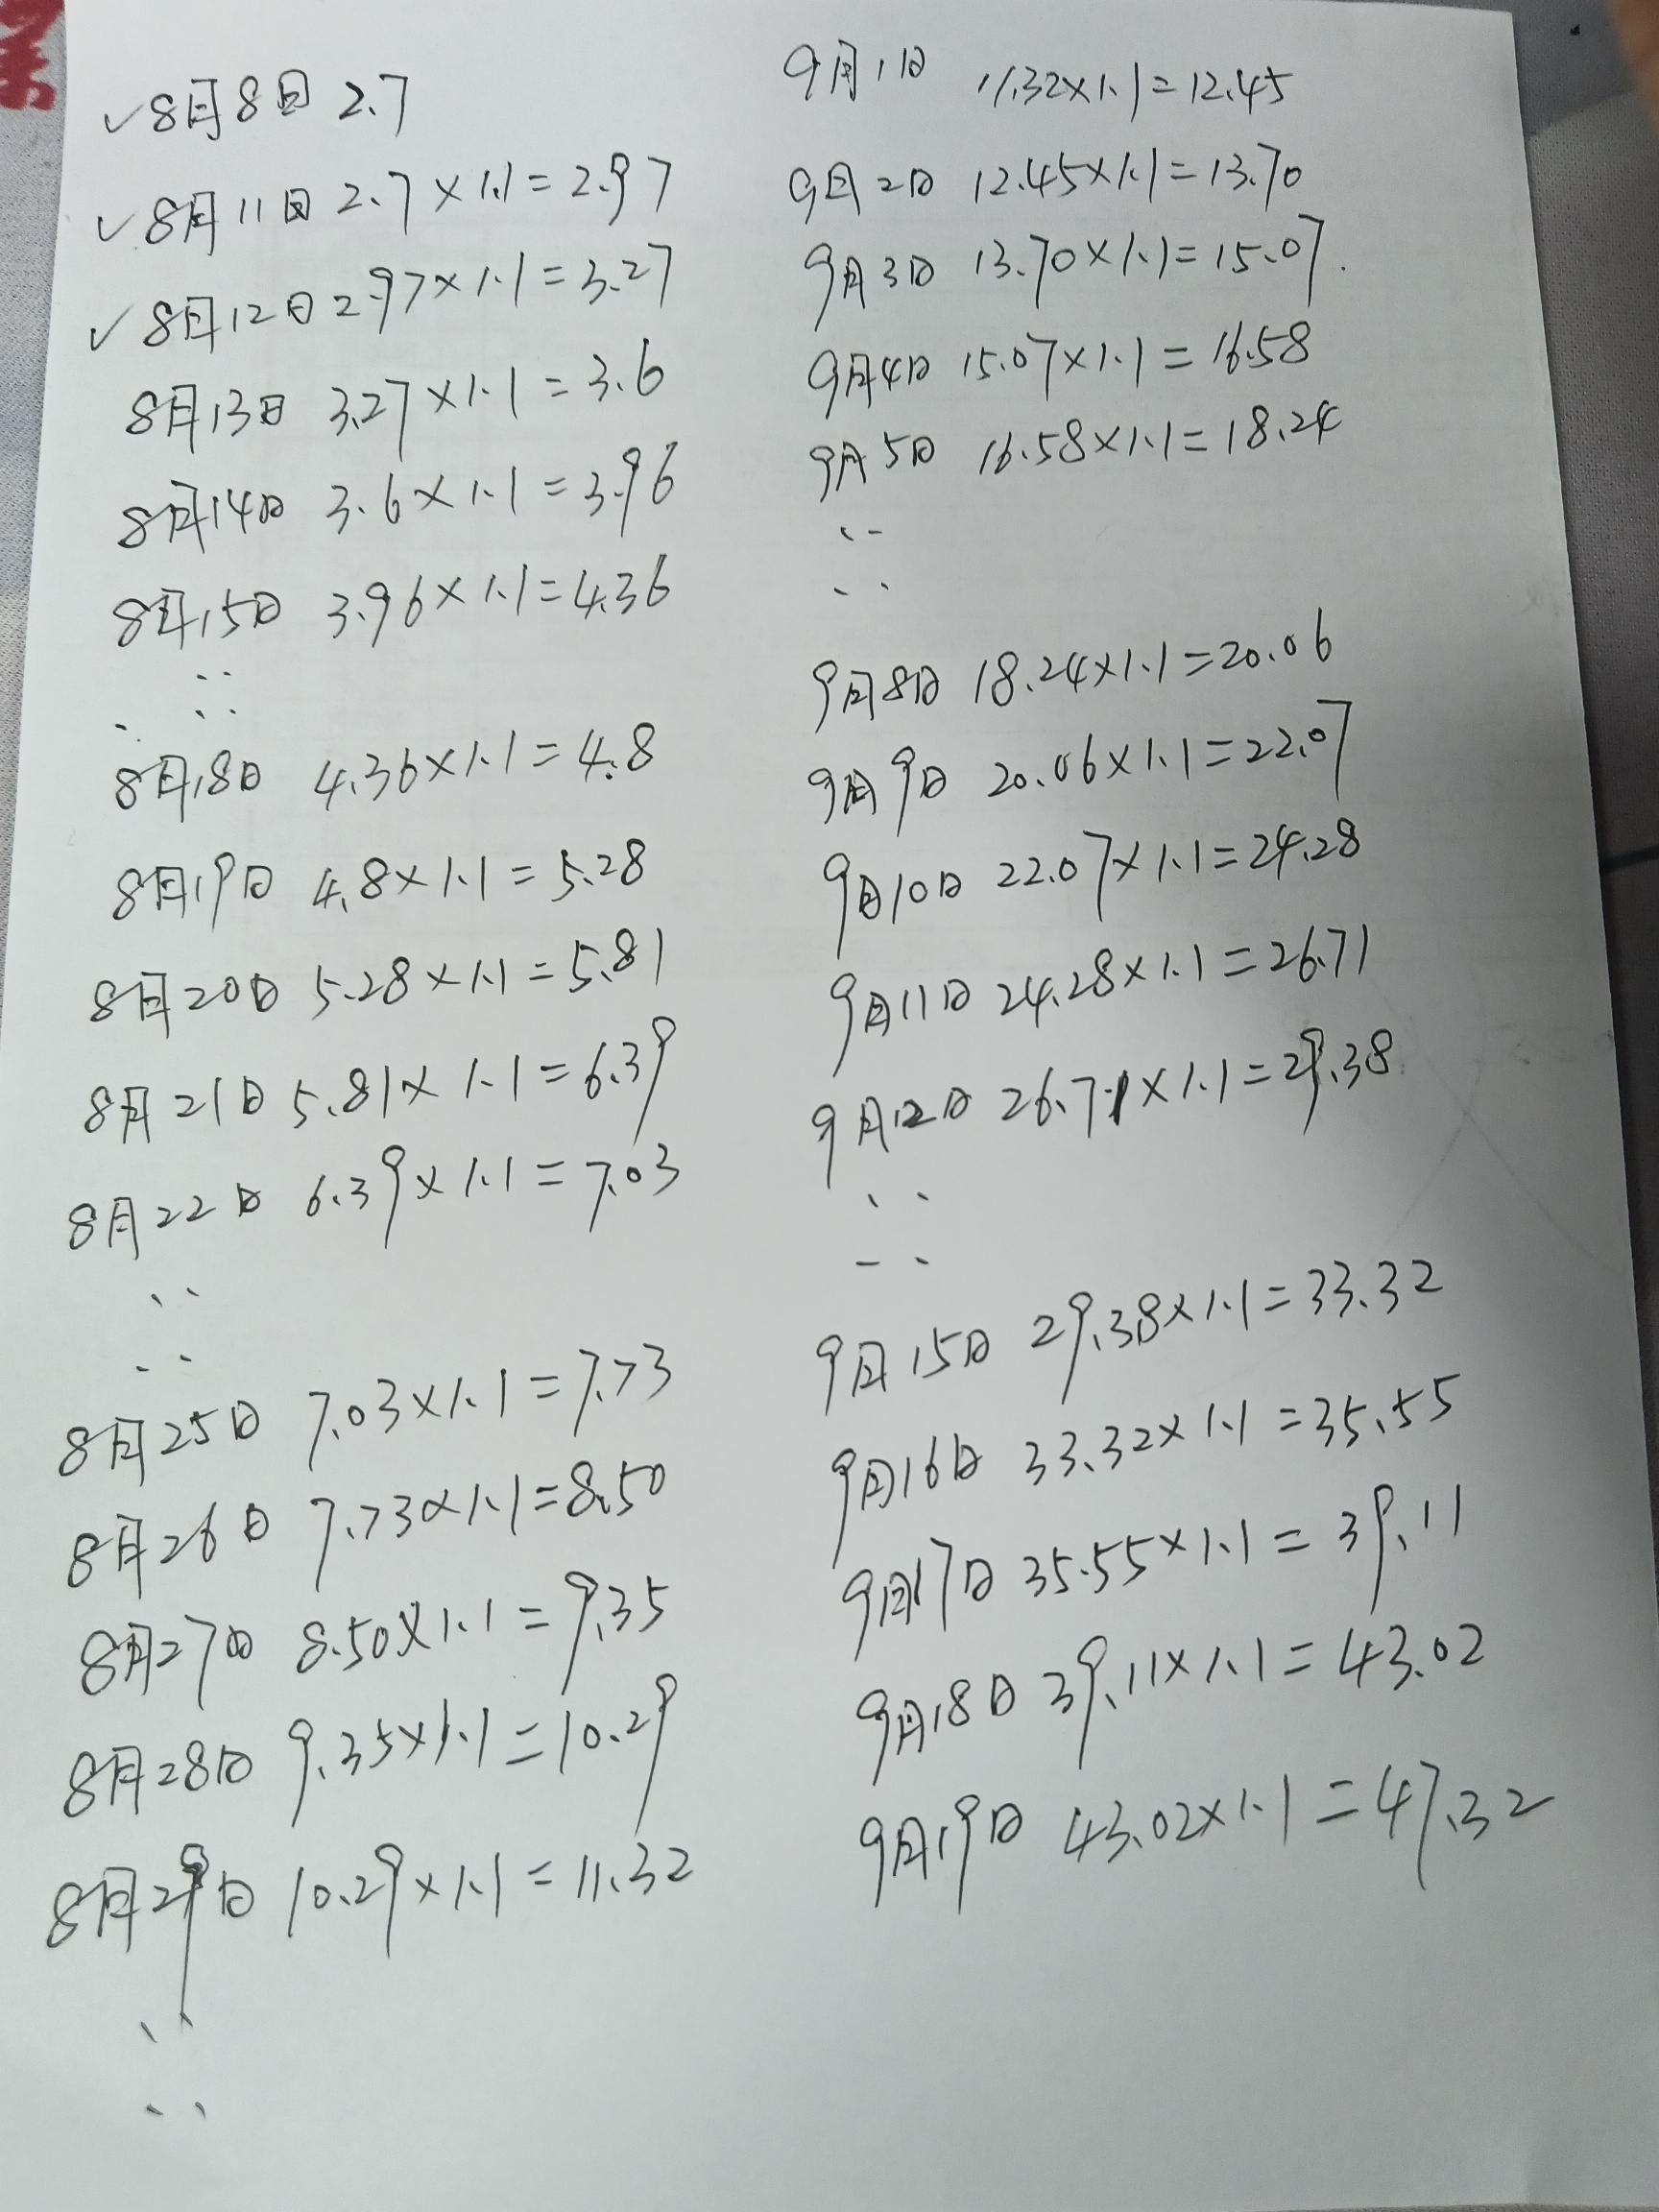 ✓8月8日 2.7
✓8月11日 2.7×1.1=2.97
✓8月12日 2.97×1.1=3.27
8月13日 3.27×1.1=3.6
8月14日 3.6×1.1=3.96
8月15日 3.96×1.1=4.36
8月18日 4.36×1.1=4.8
8月19日 4.8×1.1=5.28
8月20日 5.28×1.1=5.81
8月21日 5.81×1.1=6.39
8月22日 6.39×1.1=7.03
8月25日 7.03×1.1=7.73
8月26日 7.73×1.1=8.50
8月27日 8.50×1.1=9.35
8月28日 9.35×1.1=10.29
8月29日 10.29×1.1=11.32
9月1日 11.32×1.1=12.45
9月2日 12.45×1.1=13.70
9月3日 13.70×1.1=15.07.
9月4日 15.07×1.1=16.58
9月5日 16.58×1.1=18.24
9月8日 18.24×1.1=20.06
9月9日 20.06×1.1=22.07
9月10日 22.07×1.1=24.28
9月11日 24.28×1.1=26.71
9月12日 26.71×1.1=29.38
9月15日 29.38×1.1=33.32
9月16日 33.32×1.1=35.55
9月17日 35.55×1.1=39.11
9月18日 39.11×1.1=43.02
9月19日 43.02×1.1=47.32